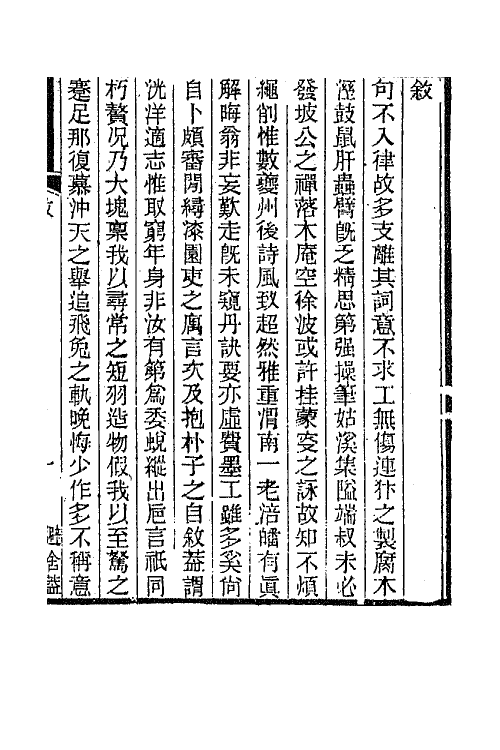 敘
句不入律故多支離其詞意不求工無傷連犿之製腐木
溼鼓鼠肝蟲臂既乏精思第强操筆姑溪集隘端叔未必
發坡公之禪落木庵空徐波或許挂蒙叟之詠故知不煩
繩削惟數夔州後詩風致超然雅重渭南一老涪皤有眞
解晦翁非妄歎走既未窺丹訣要亦虛費墨工雖多奚尙
自卜頗審閒繙漆園吏之寓言次及抱朴子之自敘葢謂
洸洋適志惟取窮年身非汝有第爲委蛻縱出巵言祇同
朽贅况乃大塊稟我以尋常之短羽造物假我以至駑之
蹇足那復慕沖天之舉追飛兔之軌晚悔少作多不稱意
敘
一